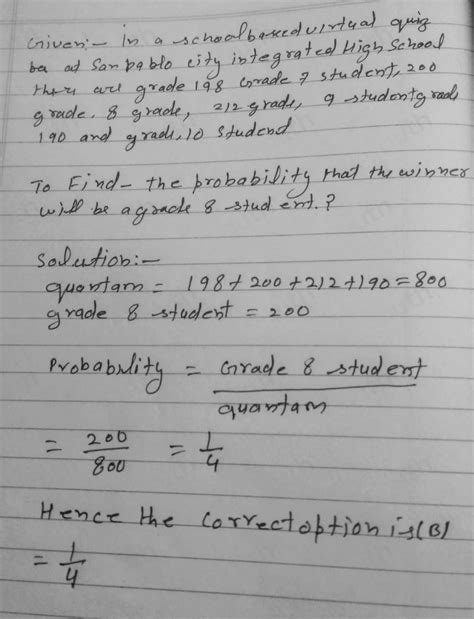 Given:- in a schoolbased virtual quiz
ba at Sanpablo city integrated High School
there are grade 198 Grade 7 student, 200
grade. 8 grade, 212 grade, 9 student grade
190 and grade, 10 Studend
To Find - the probability that the winner
will be a grade 8 stud ent.?
Solution:-
quantam = 198 + 200 + 212 + 190 = 800
grade 8 student = 200
Probability = Grade 8 student / quantam
= 200/800 = 1/4
Hence the correct option is (B)
= 1/4